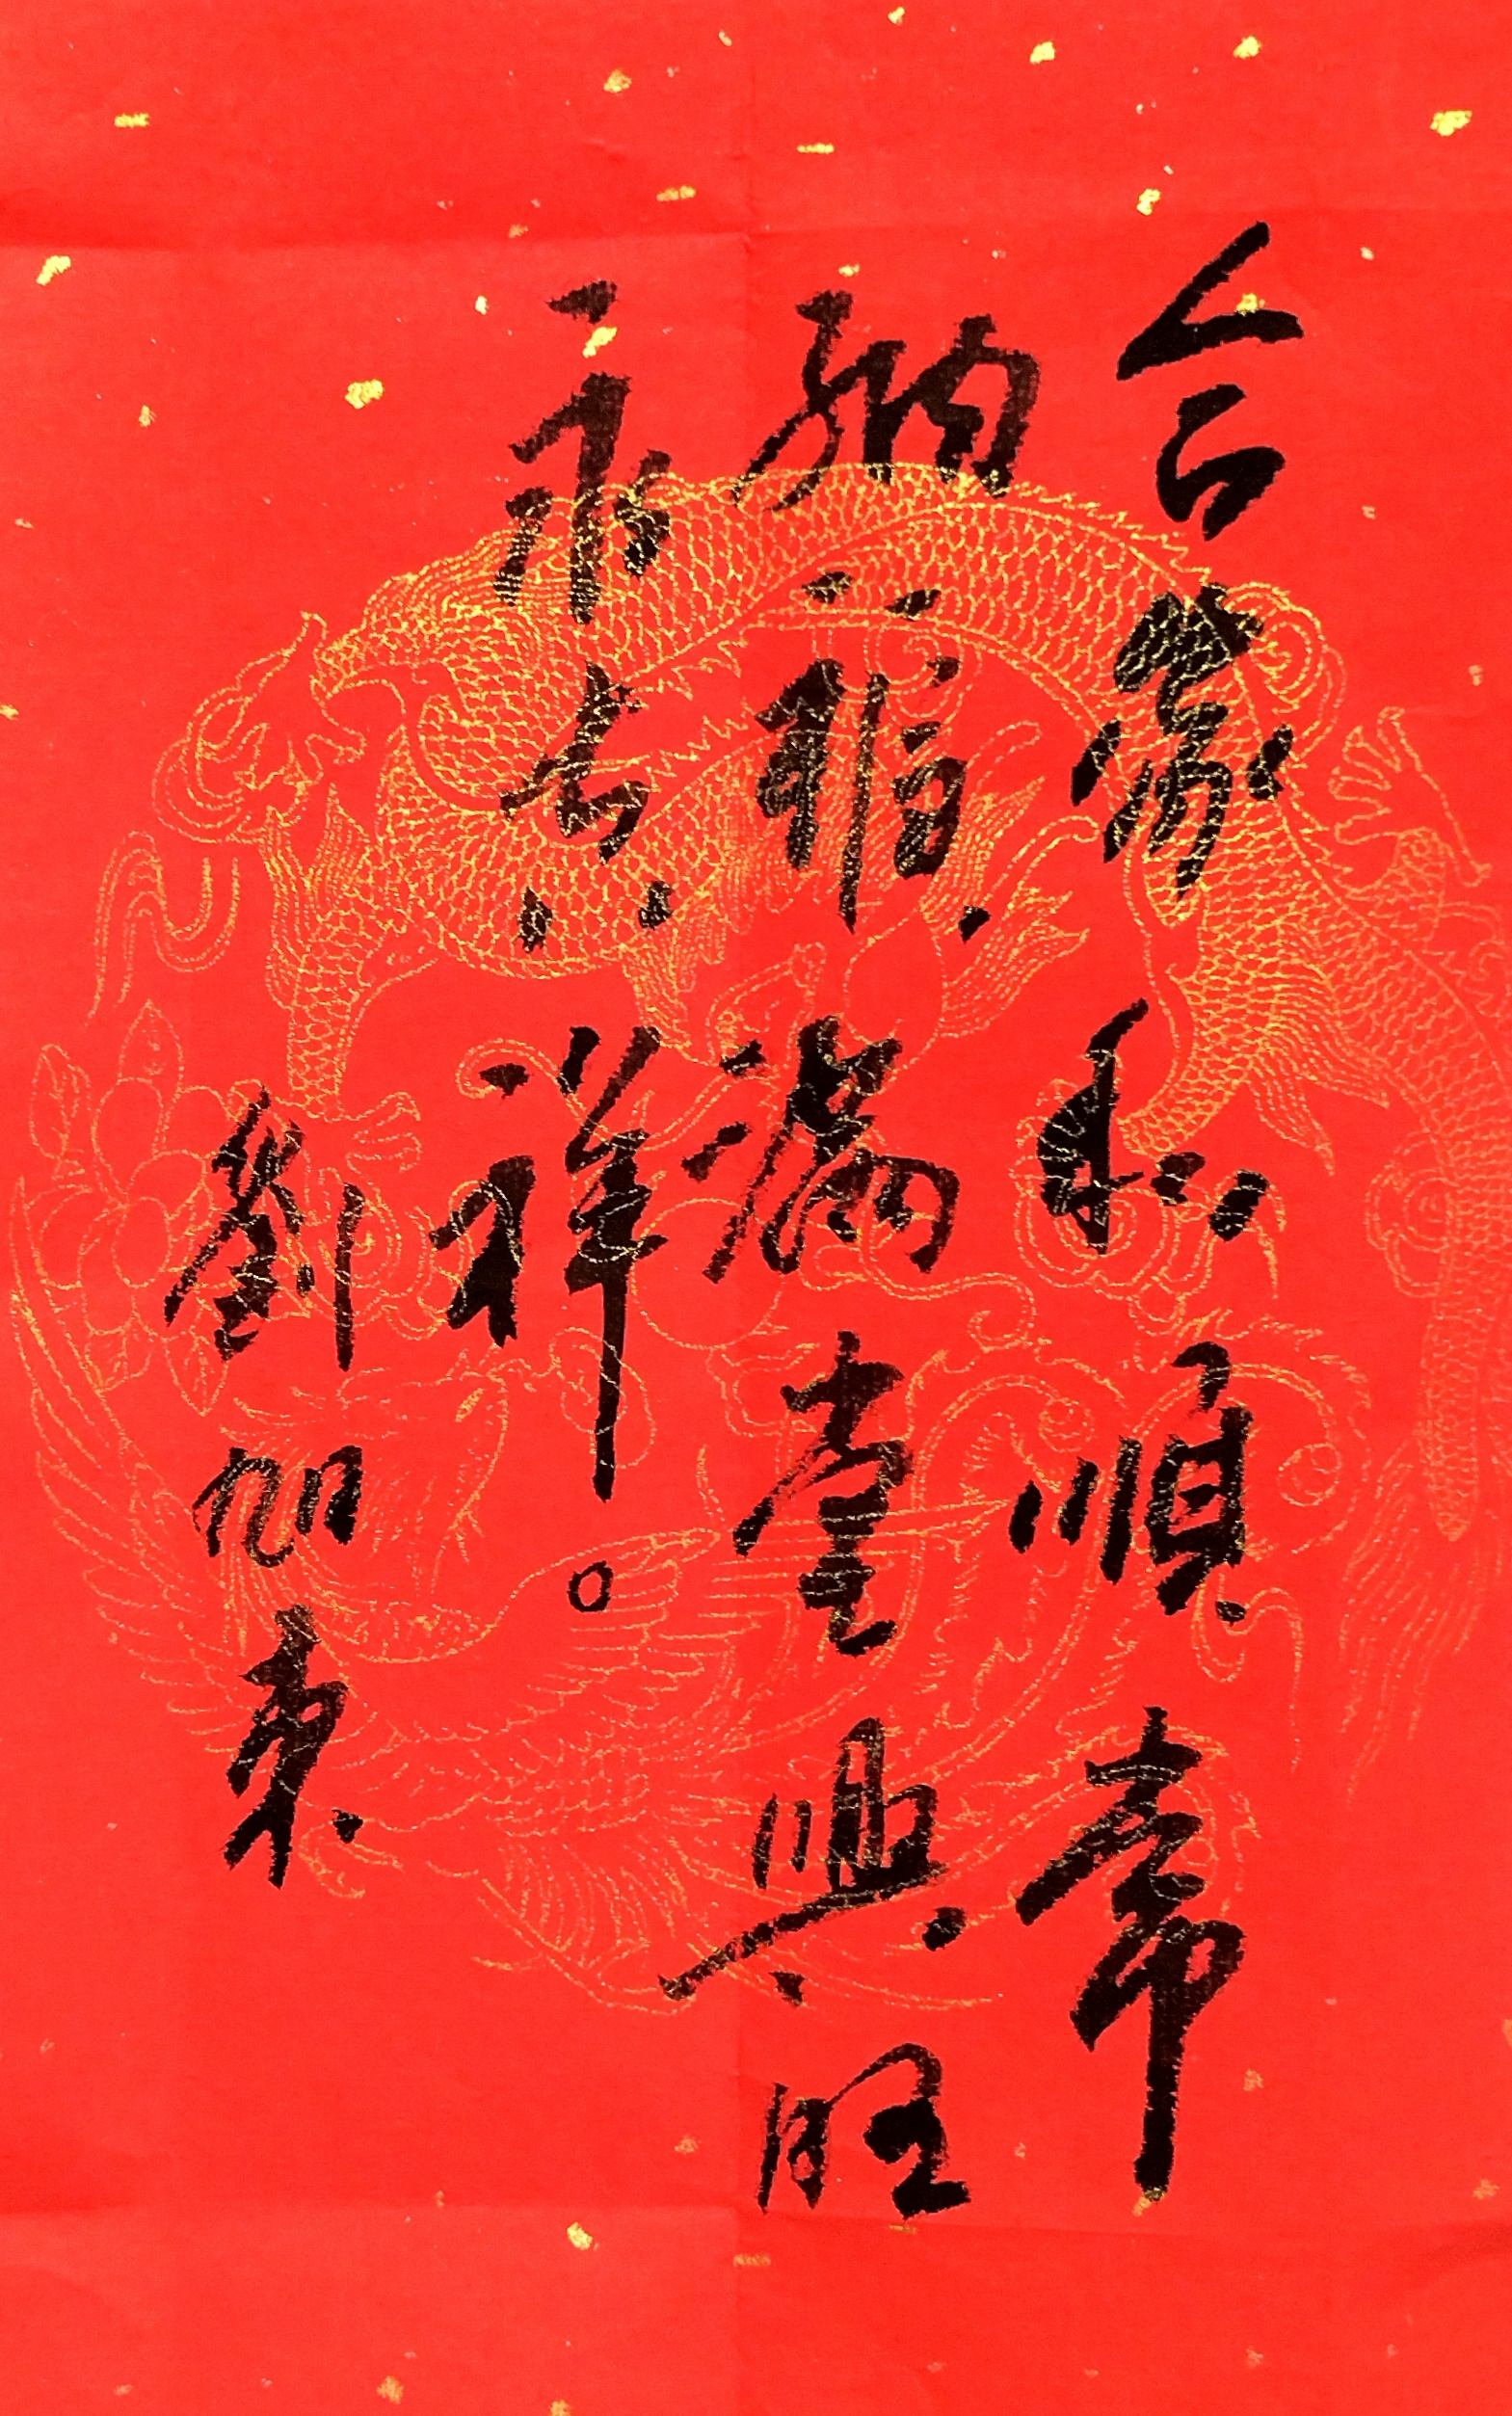 合家和順常
納福，滿堂興旺
永吉祥。
劉旭東